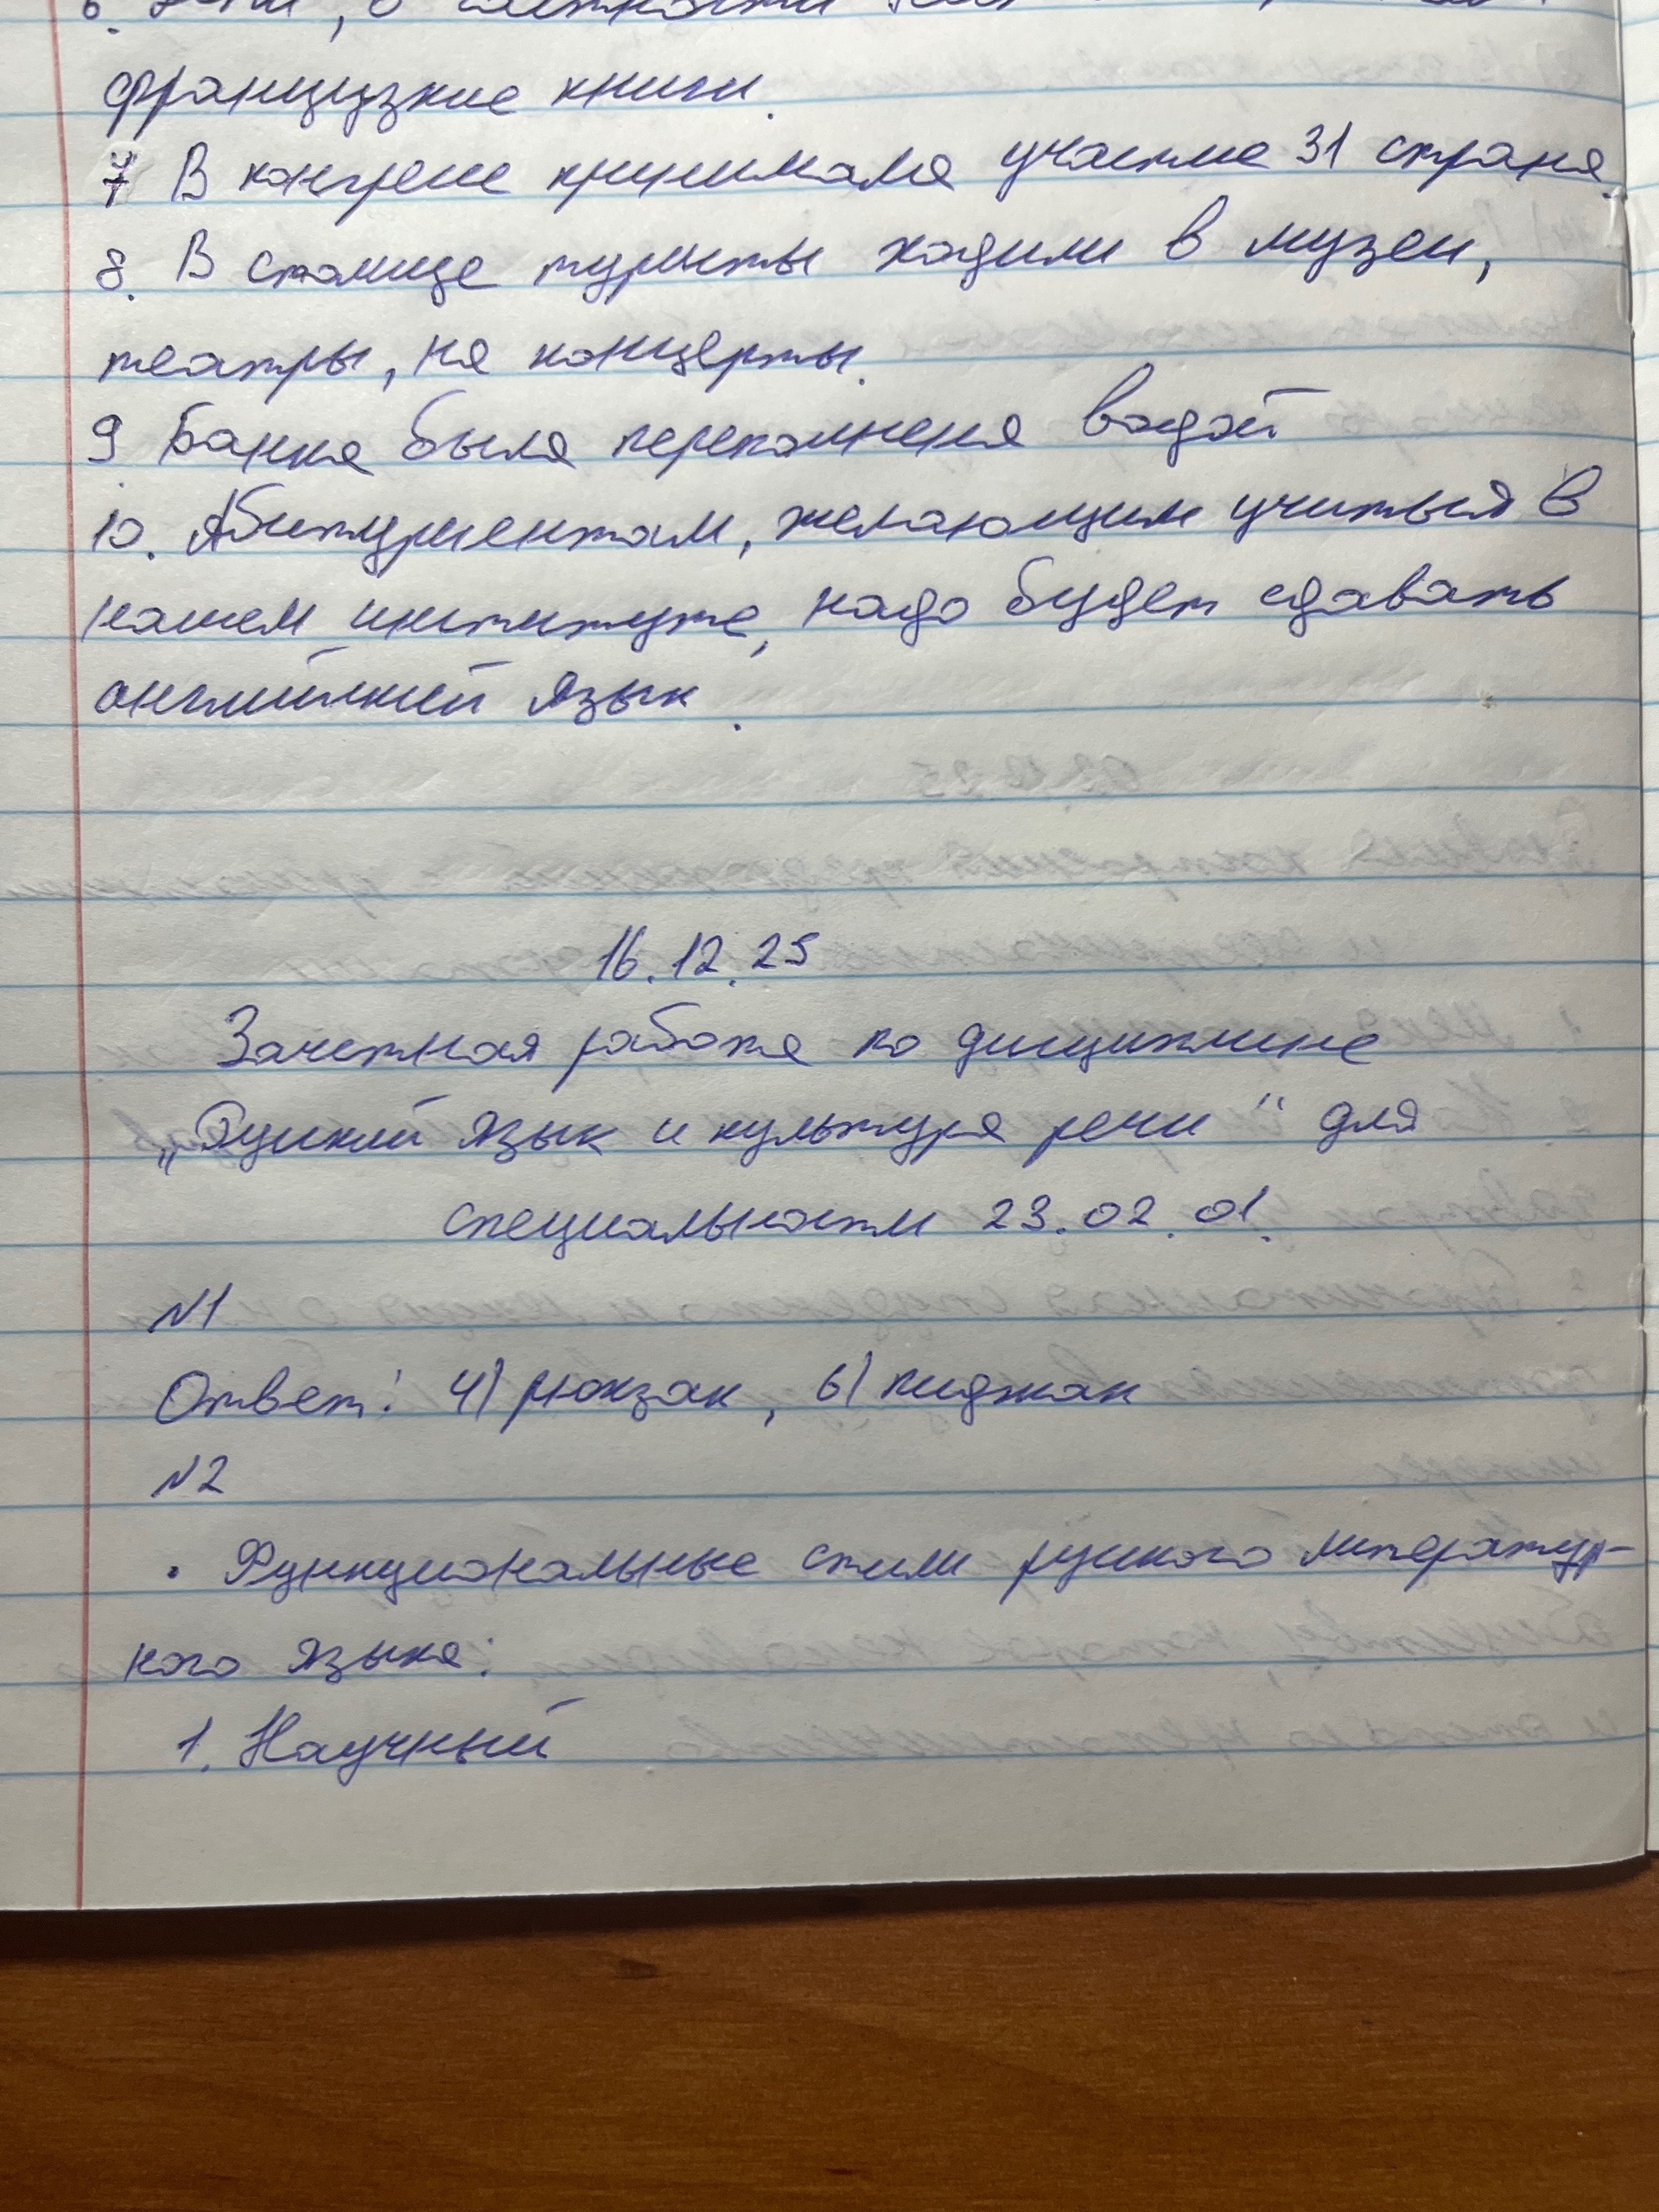 французкие книги.
7 В конгрессе принимала участие 31 страна.
8. В столице туристы ходили в музеи,
театры, на концерты.
9. Банка была переполнена водой
10. Абитуриентам, желающим учиться в
нашем институте, надо будет сдавать
английский язык.
16.12.25
Зачетная работа по дисциплине
„Русский язык и культура речи“ для
специальности 23.02.01.
№1
Ответ: 4) рюкзак, 6) пиджак
№2
• Функциональные стили русского литератур-
ного языка:
1. Научный